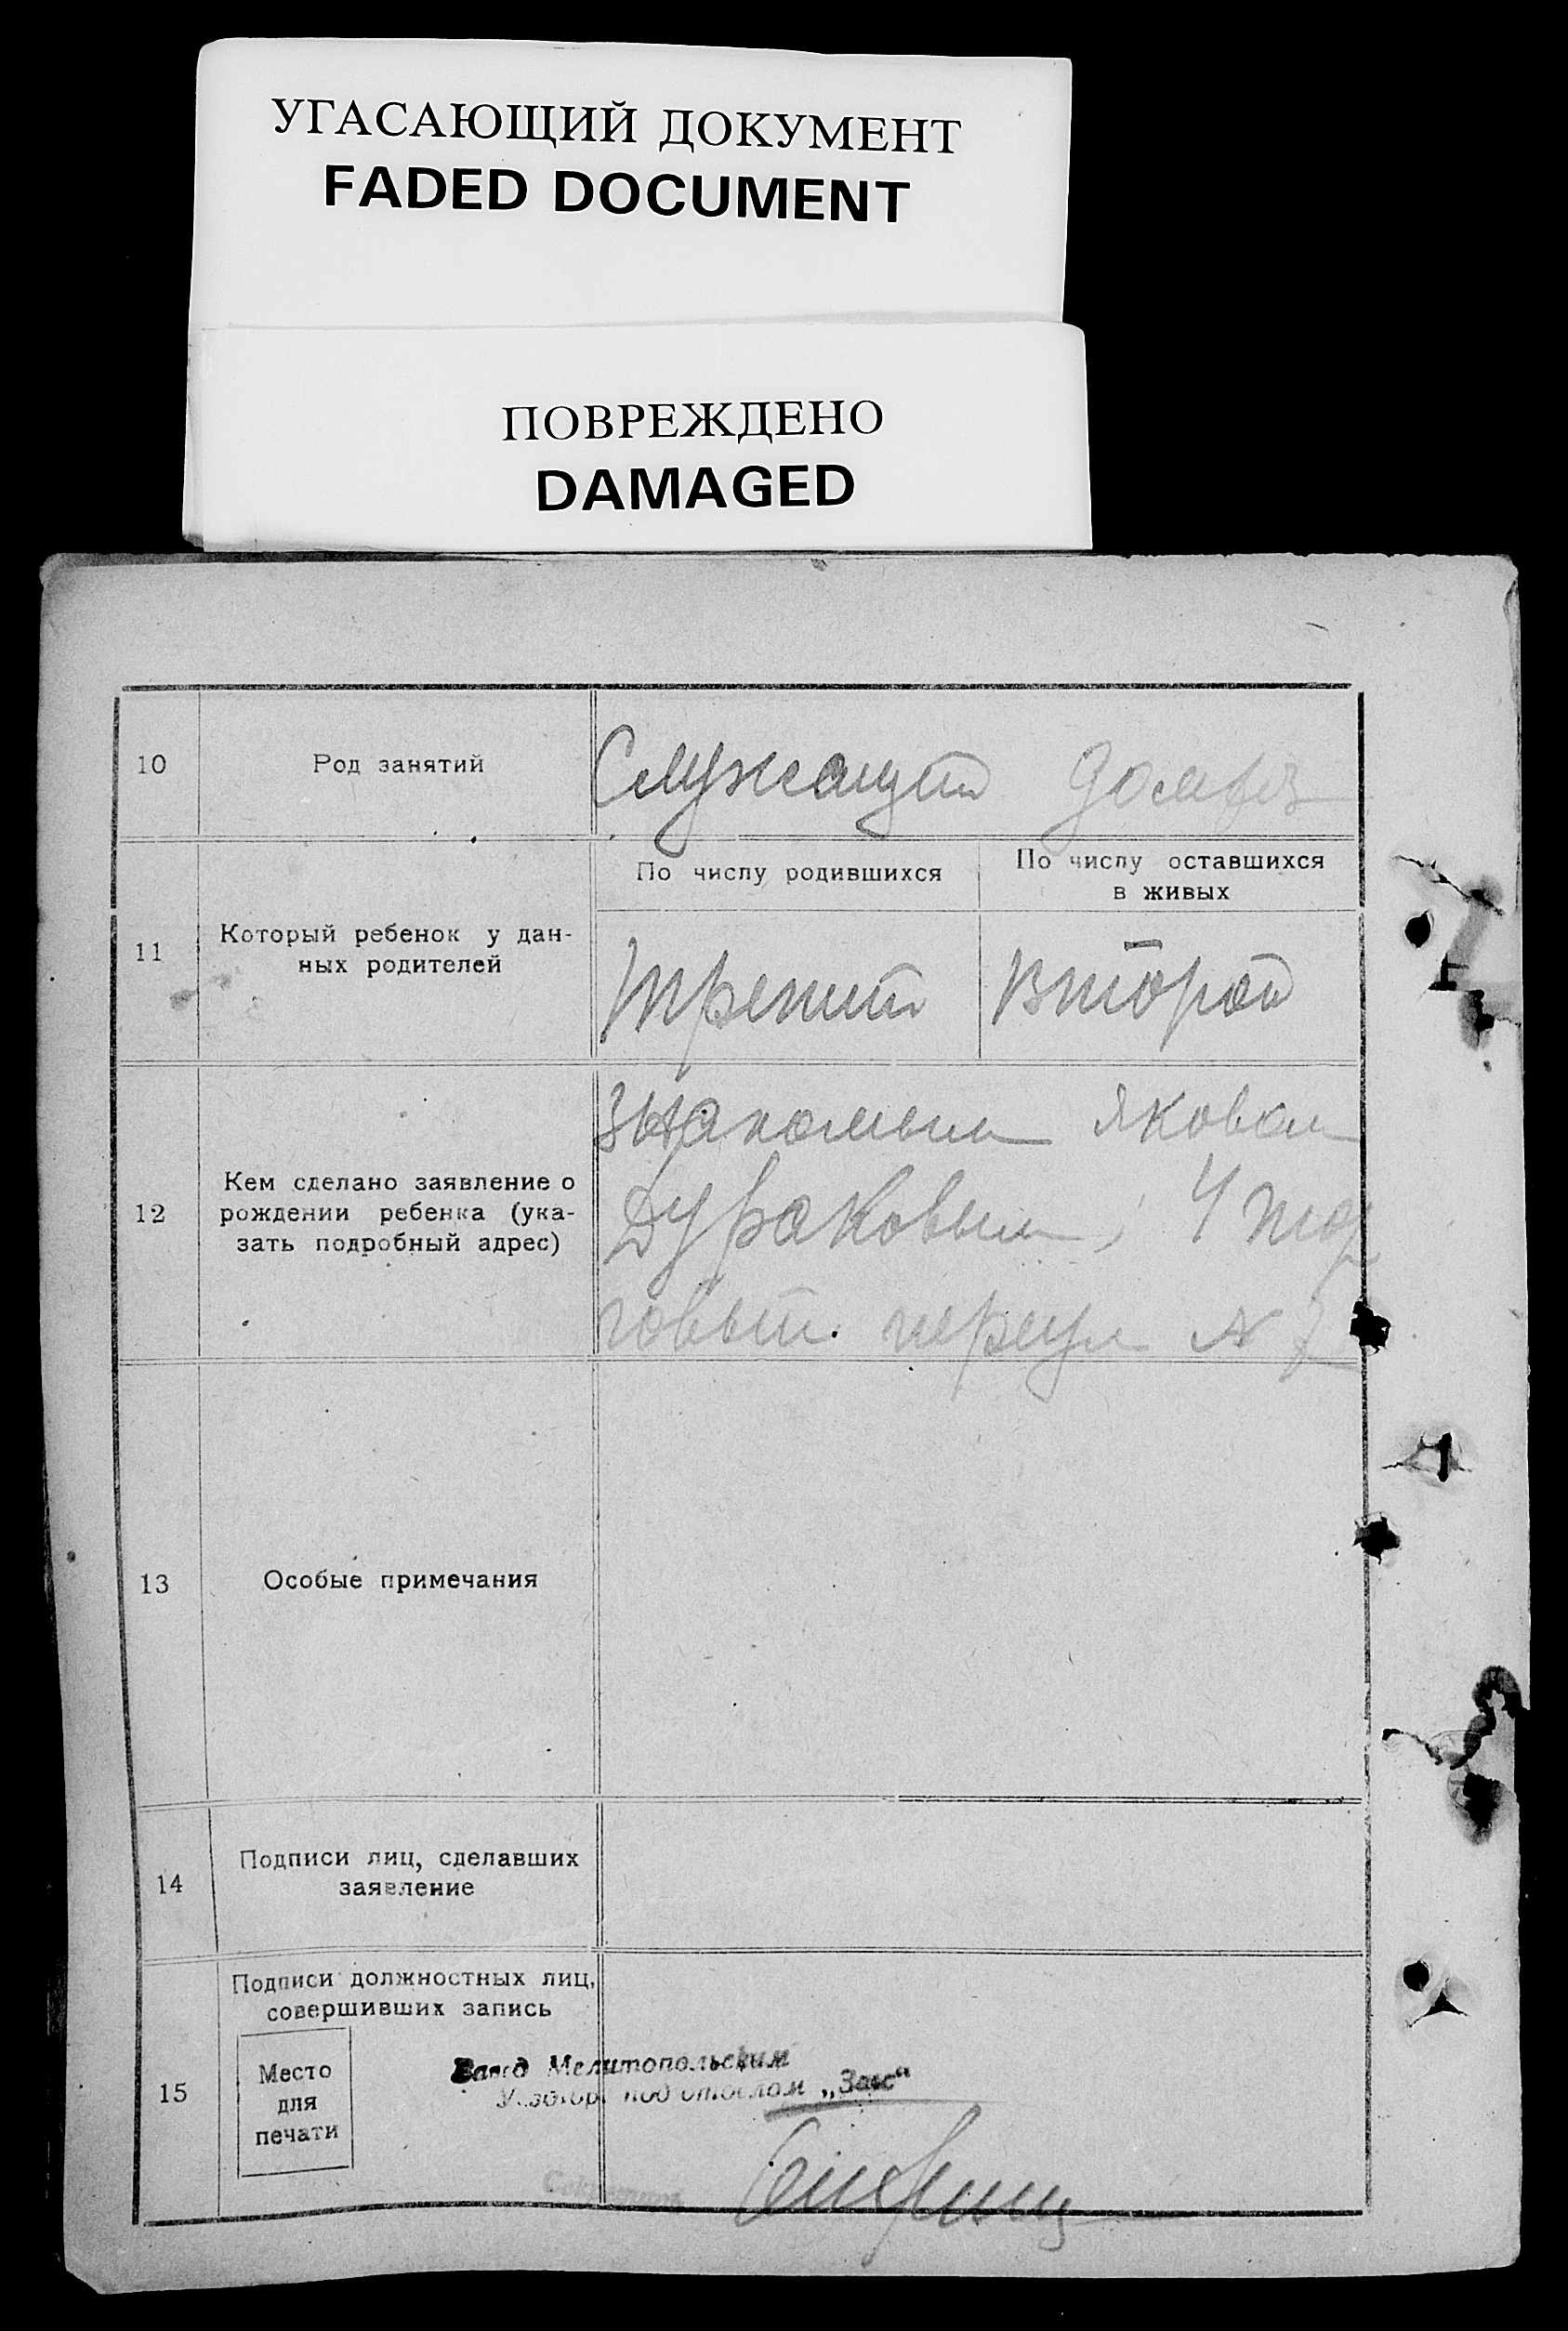 УГАСАЮЩИЙ ДОКУМЕНТ
FADED DOCUMENT
ПОВРЕЖДЕНО
DAMAGED
10 Род занятий Служащий домхоз
11 Который ребенок у дан-
ных родителей
По числу родившихся
Третий
По числу оставшихся
в живых
Второй
12 Кем сделано заявление о
рождении ребенка (ука-
зать подробный адрес)
Знакомым Яковом
Дубаковым, 4 тор
говый. переул N 7
13 Особые примечания
14 Подписи лиц, сделавших
заявление
15 Подписи должностных лиц,
совершивших запись
Место
для
печати
Завед Мелитопольским
под отделом „Загс“
Секретарь